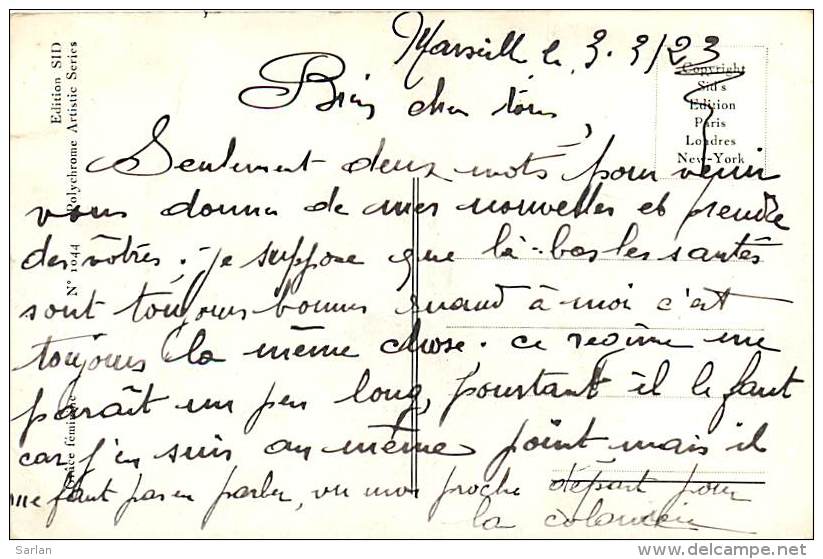 Marseille le 3.3/23
Copyright
Sid's
Edition
Paris
Londres
New-York
Edition SID
Polychrome Artistic Series
N° 1044
Grâce féminine
Bien cher tous,
Seulement deux mots pour venir
vous donner de mes nouvelles et prendre
des vôtres; je suppose que là-bas les santés
sont toujours bonnes quand à moi c'est
toujours la même chose. ce regime me
paraît un peu long, pourtant il le faut
car j'en suis au même point mais il
me faut pas en parler, vu mon proche départ pour
la
Sarlan
www.delcampe.net